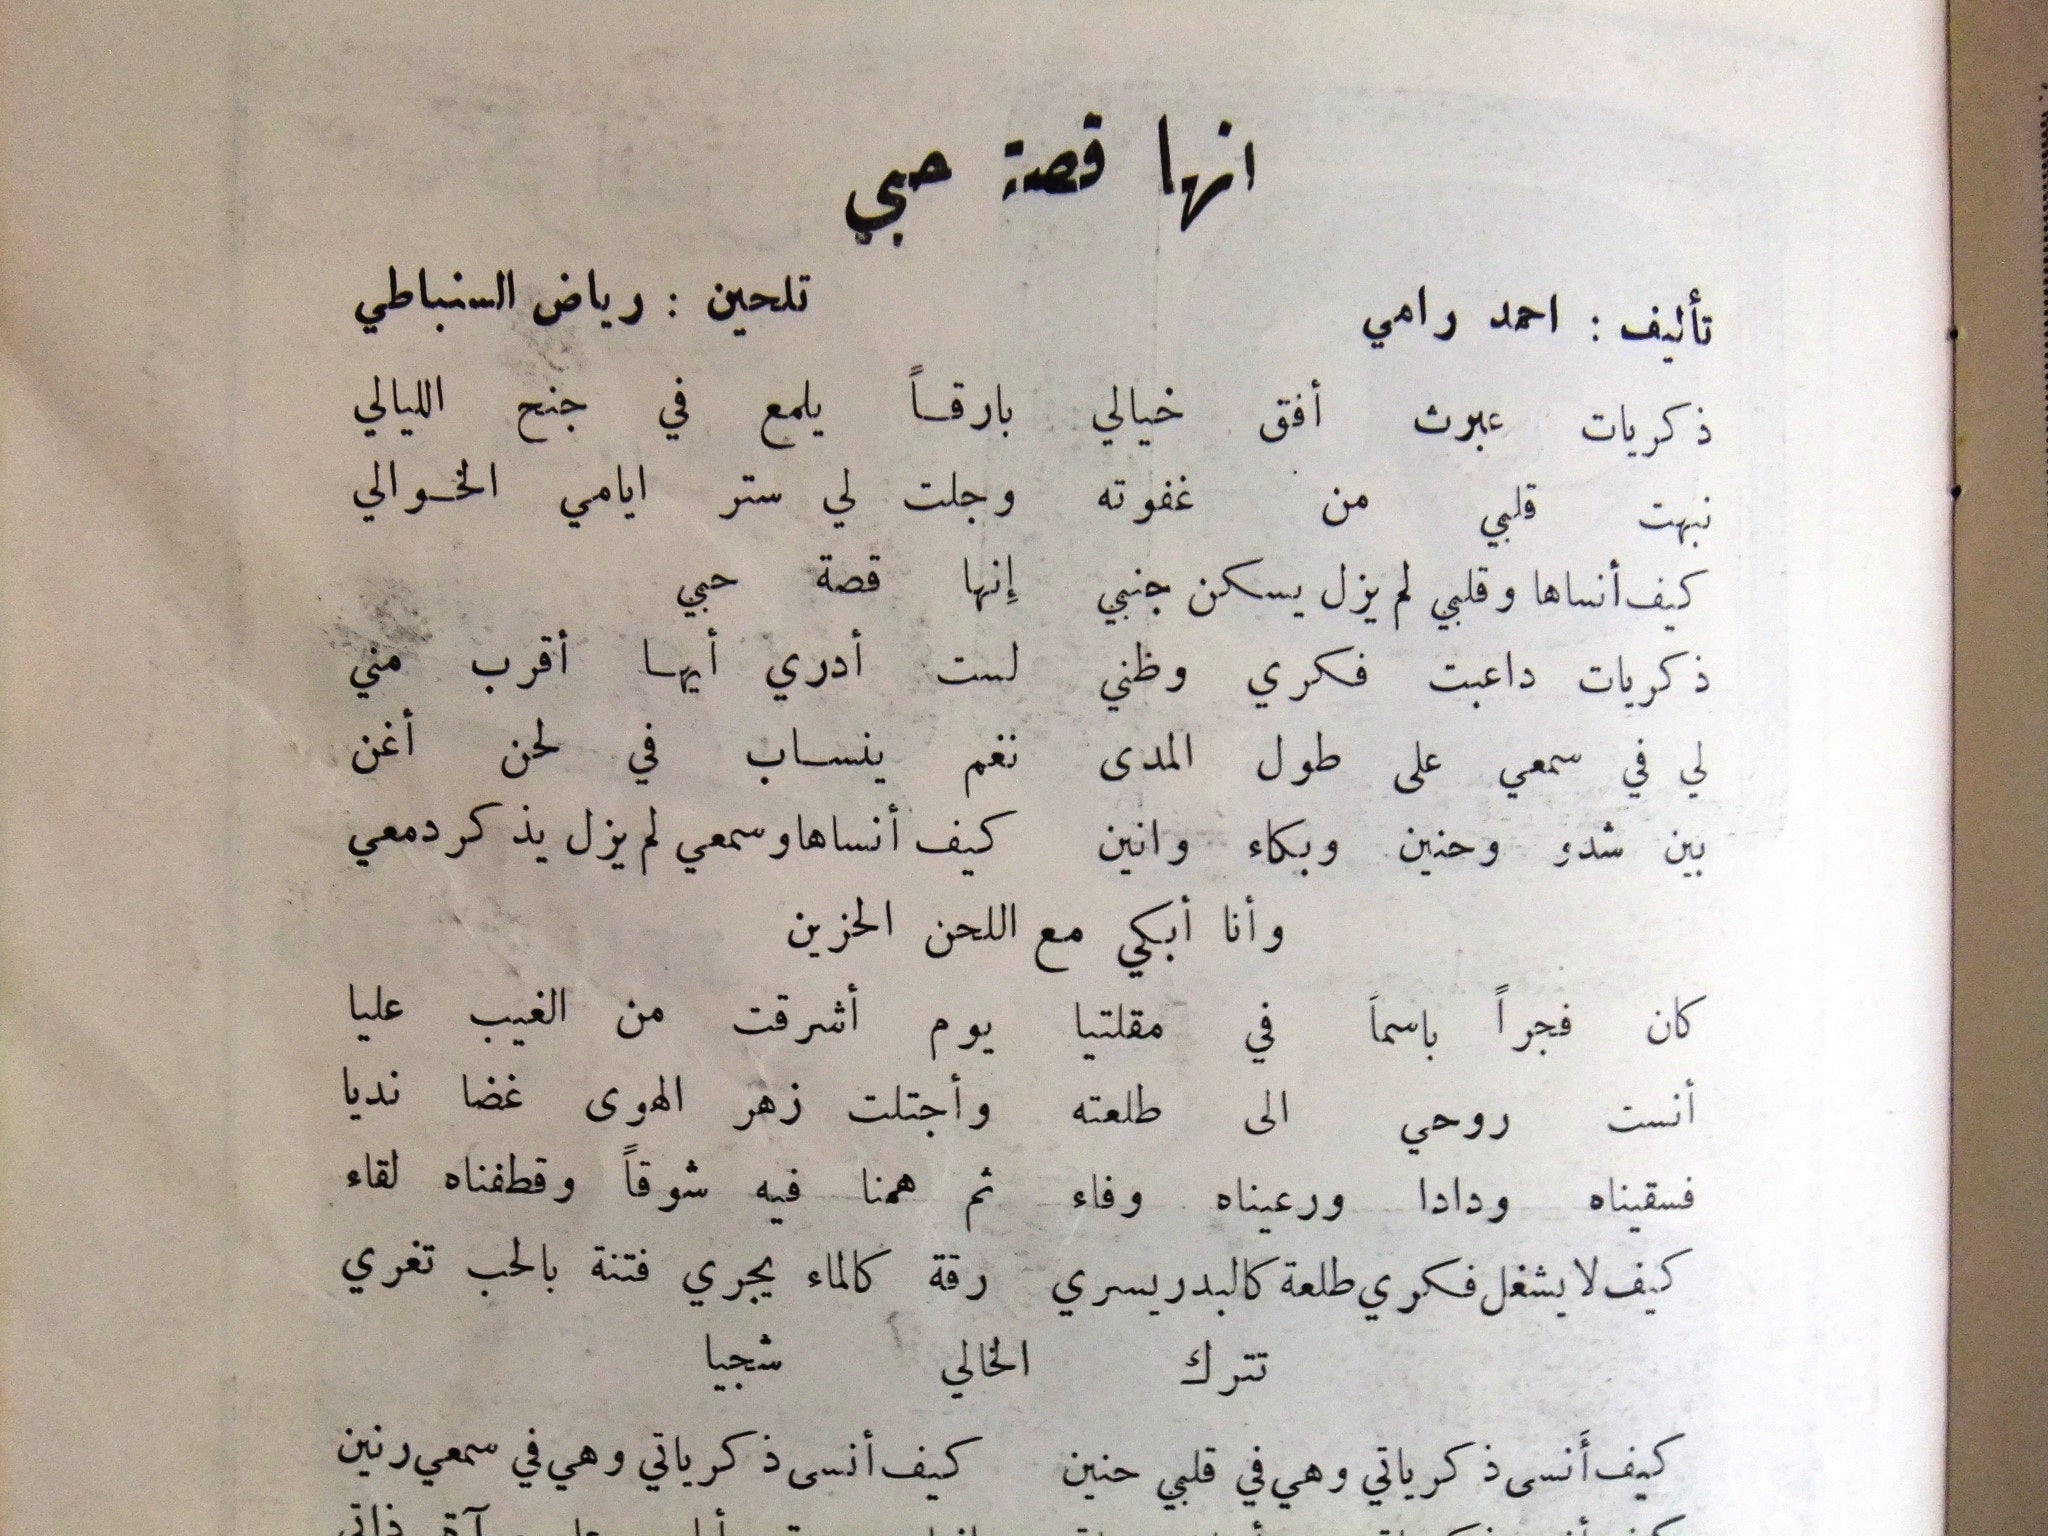 انها قصة حبي
تأليف : احمد رامي تلحين : رياض السنباطي
ذكريات عبرت أفق خيالي بارقاً يلمع في جنح الليالي
نبهت قلبي من غفوته وجلت لي ستر ايامي الخوالي
كيف أنساها وقلبي لم يزل يسكن جنبي إنها قصة حبي
ذكريات داعبت فكري وظني لست أدري أيها أقرب مني
لي في سمعي على طول المدى نغم ينساب في لحن أغن
بين شدو وحنين وبكاء وانين كيف أنساها وسمعي لم يزل يذكر دمعي
وأنا أبكي مع اللحن الحزين
كان فجراً باسماً في مقلتيا يوم أشرقت من الغيب عليا
أنست روحي الى طلعته وأجتلت زهر الهوى غضا نديا
فسقيناه ودادا ورعيناه وفاء ثم همنا فيه شوقاً وقطفناه لقاء
كيف لا يشغل فكري طلعة كالبدر يسري رقة كالماء يجري فتنة بالحب تغري
تترك الخالي شجيا
كيف أنسى ذكرياتي وهي في قلبي حنين كيف أنسى ذكرياتي وهي في سمعي رنين